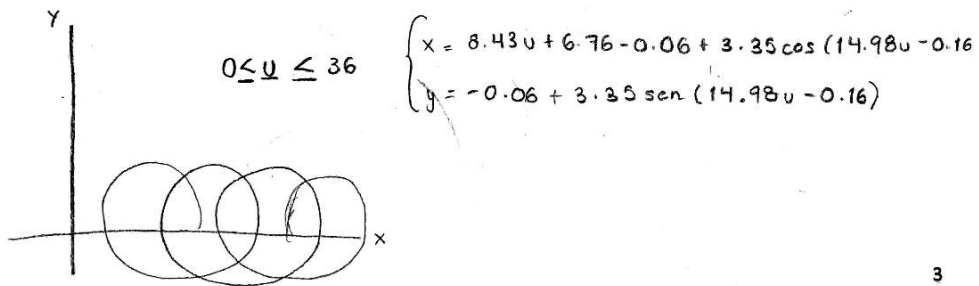 Y
0 ≤ u ≤ 36
x = 8.43u + 6.76 - 0.06 + 3.35 cos (14.98u - 0.16
y = -0.06 + 3.35 sen (14.98u - 0.16)
x
3